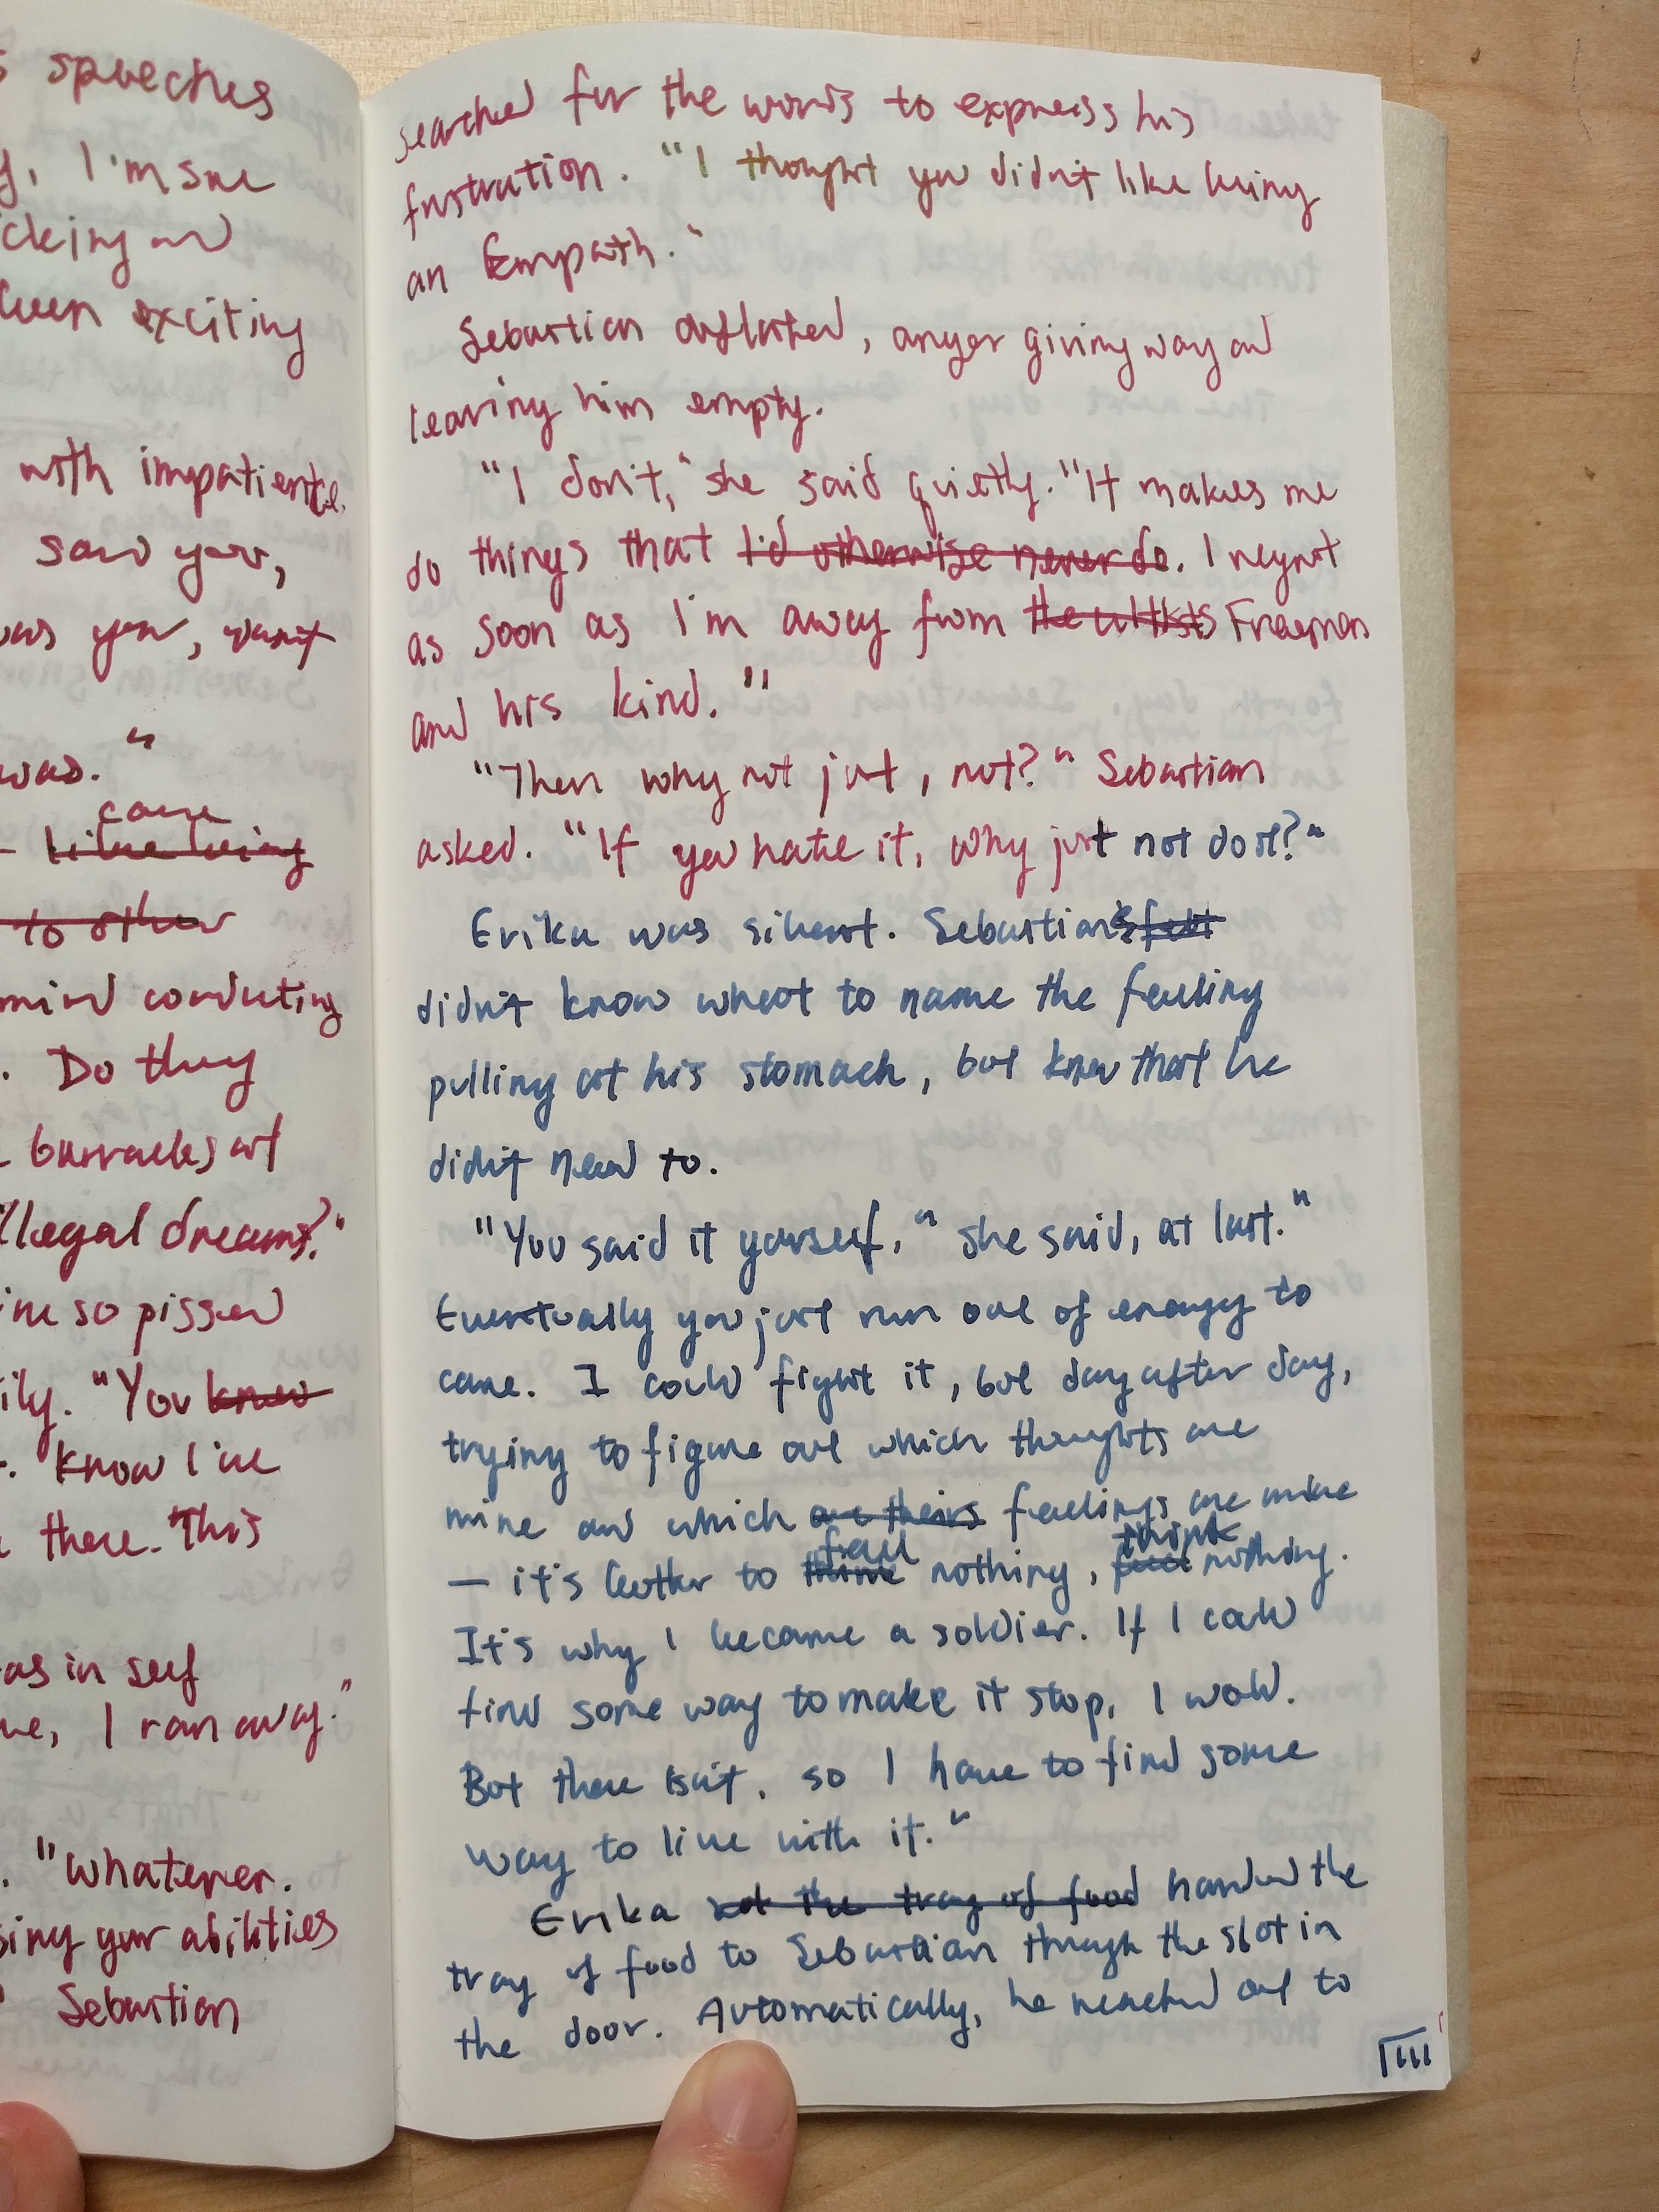 speeches
I'm sure
exciting
with impatience.
saw you,
was you, want
was."
came
like being
to other
mind conducting
Do they
barracks at
illegal dreams?"
so pissed
"You knew
know I've
there. This
as in self
me, I ran away."
"Whatever.
your abilities
Sebastian
searched for the words to express his
frustration. "I thought you didn't like being
an Empath."
Sebastian deflated, anger giving way and
leaving him empty.
"I don't," she said quietly. "It makes me
do things that I'd otherwise never do. I regret
as soon as I'm away from the cultists Freeman
and his kind."
"Then why not just, not?" Sebastian
asked. "If you hate it, why just not do it?"
Erika was silent. Sebastian's felt
didn't know what to name the feeling
pulling at his stomach, but knew that he
didn't need to.
"You said it yourself," she said, at last."
Eventually you just run out of energy to
care. I could fight it, but day after day,
trying to figure out which thoughts are
mine and which are theirs feelings are mine
feel think
— it's better to think nothing, feel nothing.
It's why I became a soldier. If I could
find some way to make it stop, I would.
But there isn't, so I have to find some
way to live with it."
Erika the tray of food handed the
tray of food to Sebastian through the slot in
the door. Automatically, he reached out to